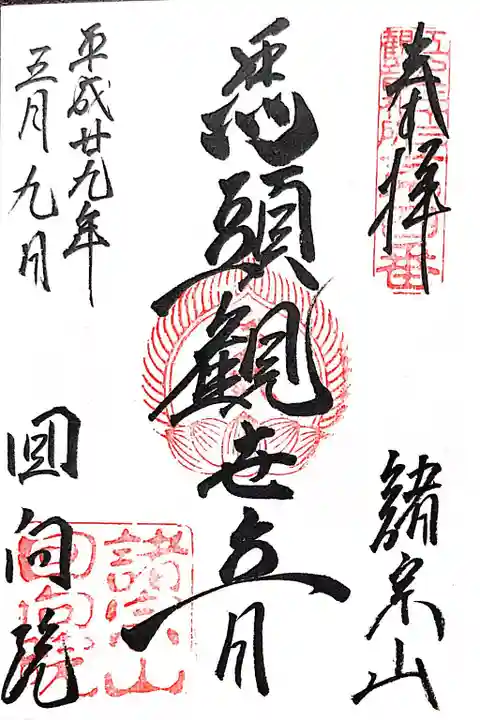 奉拝
諸宗山
馬頭観世音
平成廿九年
五月九日
回向院
諸宗山
回向院